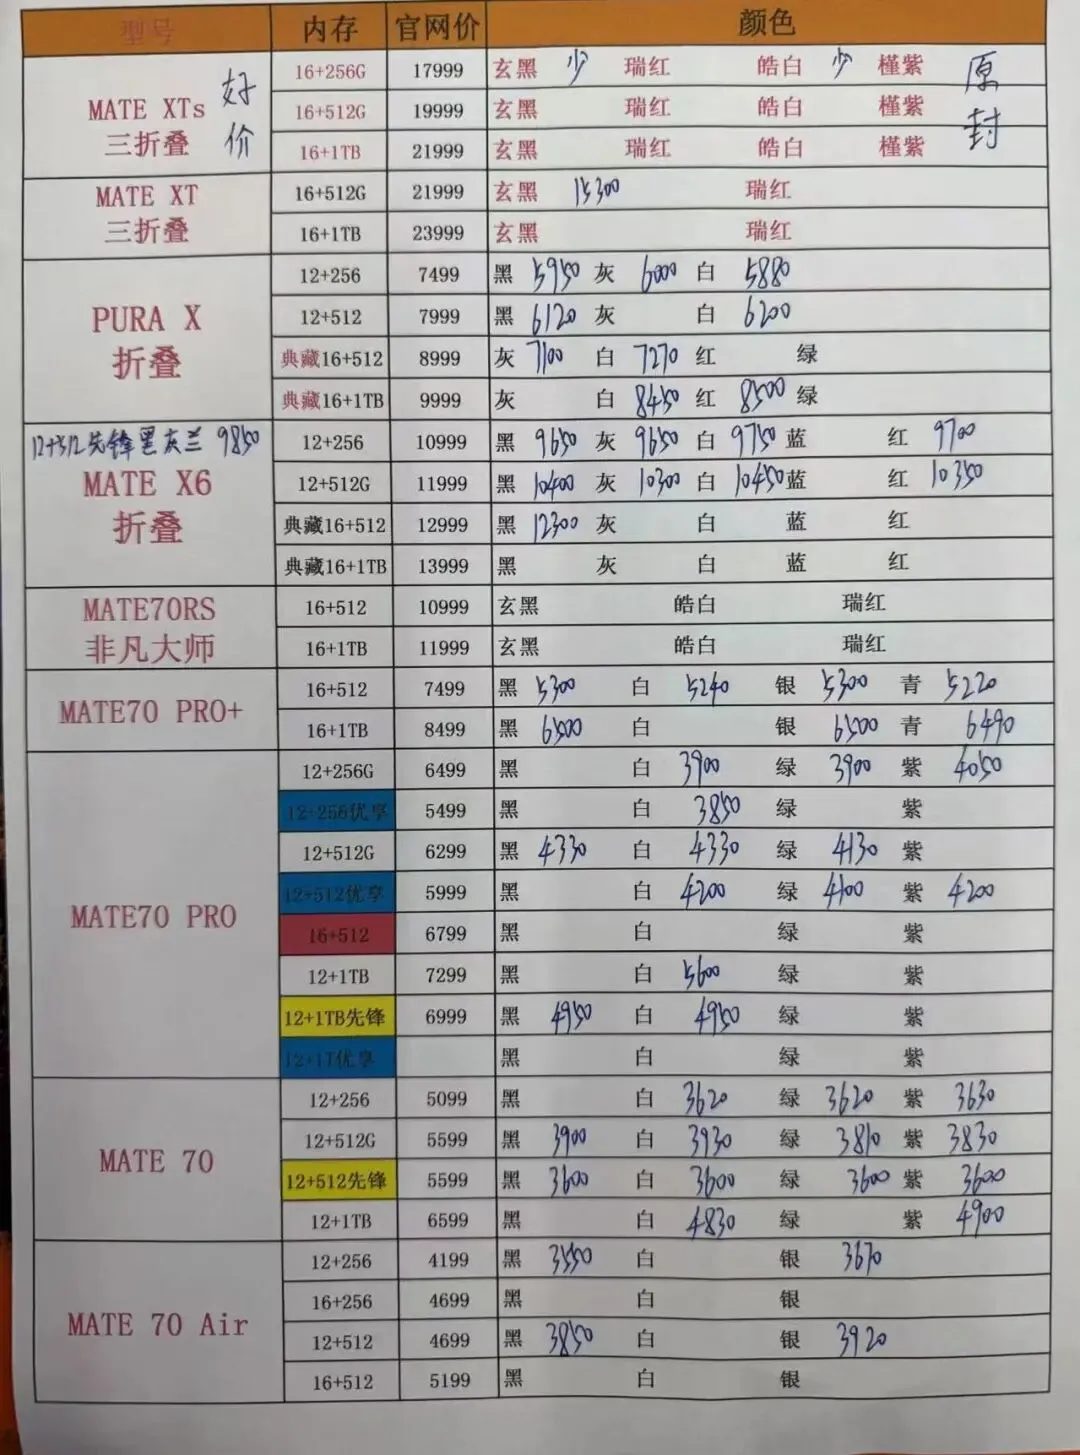 型号 内存 官网价 颜色
MATE XTs 三折叠 好价 原封
16+256G 17999 玄黑 少 瑞红 皓白 少 槿紫
16+512G 19999 玄黑 瑞红 皓白 槿紫
16+1TB 21999 玄黑 瑞红 皓白 槿紫
MATE XT 三折叠
16+512G 21999 玄黑 15300 瑞红
16+1TB 23999 玄黑 瑞红
PURA X 折叠
12+256 7499 黑 5950 灰 6000 白 5880
12+512 7999 黑 6120 灰 白 6200
典藏16+512 8999 灰 7100 白 7270 红 绿
典藏16+1TB 9999 灰 白 8450 红 8500 绿
12+512先锋黑灰兰 9850
MATE X6 折叠
12+256 10999 黑 9650 灰 9650 白 9750 蓝 红 9700
12+512G 11999 黑 10400 灰 10300 白 10450 蓝 红 10350
典藏16+512 12999 黑 12300 灰 白 蓝 红
典藏16+1TB 13999 黑 灰 白 蓝 红
MATE70RS 非凡大师
16+512 10999 玄黑 皓白 瑞红
16+1TB 11999 玄黑 皓白 瑞红
MATE70 PRO+
16+512 7499 黑 5300 白 5240 银 5300 青 5220
16+1TB 8499 黑 6500 白 银 6500 青 6490
MATE70 PRO
12+256G 6499 黑 白 3900 绿 3900 紫 4050
12+256优享 5499 黑 白 3850 绿 紫
12+512G 6299 黑 4330 白 4330 绿 4130 紫
12+512优享 5999 黑 白 4200 绿 4100 紫 4200
16+512 6799 黑 白 绿 紫
12+1TB 7299 黑 白 5600 绿 紫
12+1TB先锋 6999 黑 4950 白 4950 绿 紫
12+1T优享 黑 白 绿 紫
MATE 70
12+256 5099 黑 白 3620 绿 3620 紫 3630
12+512G 5599 黑 3900 白 3930 绿 3810 紫 3830
12+512先锋 5599 黑 3600 白 3600 绿 3600 紫 3600
12+1TB 6599 黑 白 4830 绿 紫 4900
MATE 70 Air
12+256 4199 黑 3550 白 银 3670
16+256 4699 黑 白 银
12+512 4699 黑 3850 白 银 3920
16+512 5199 黑 白 银